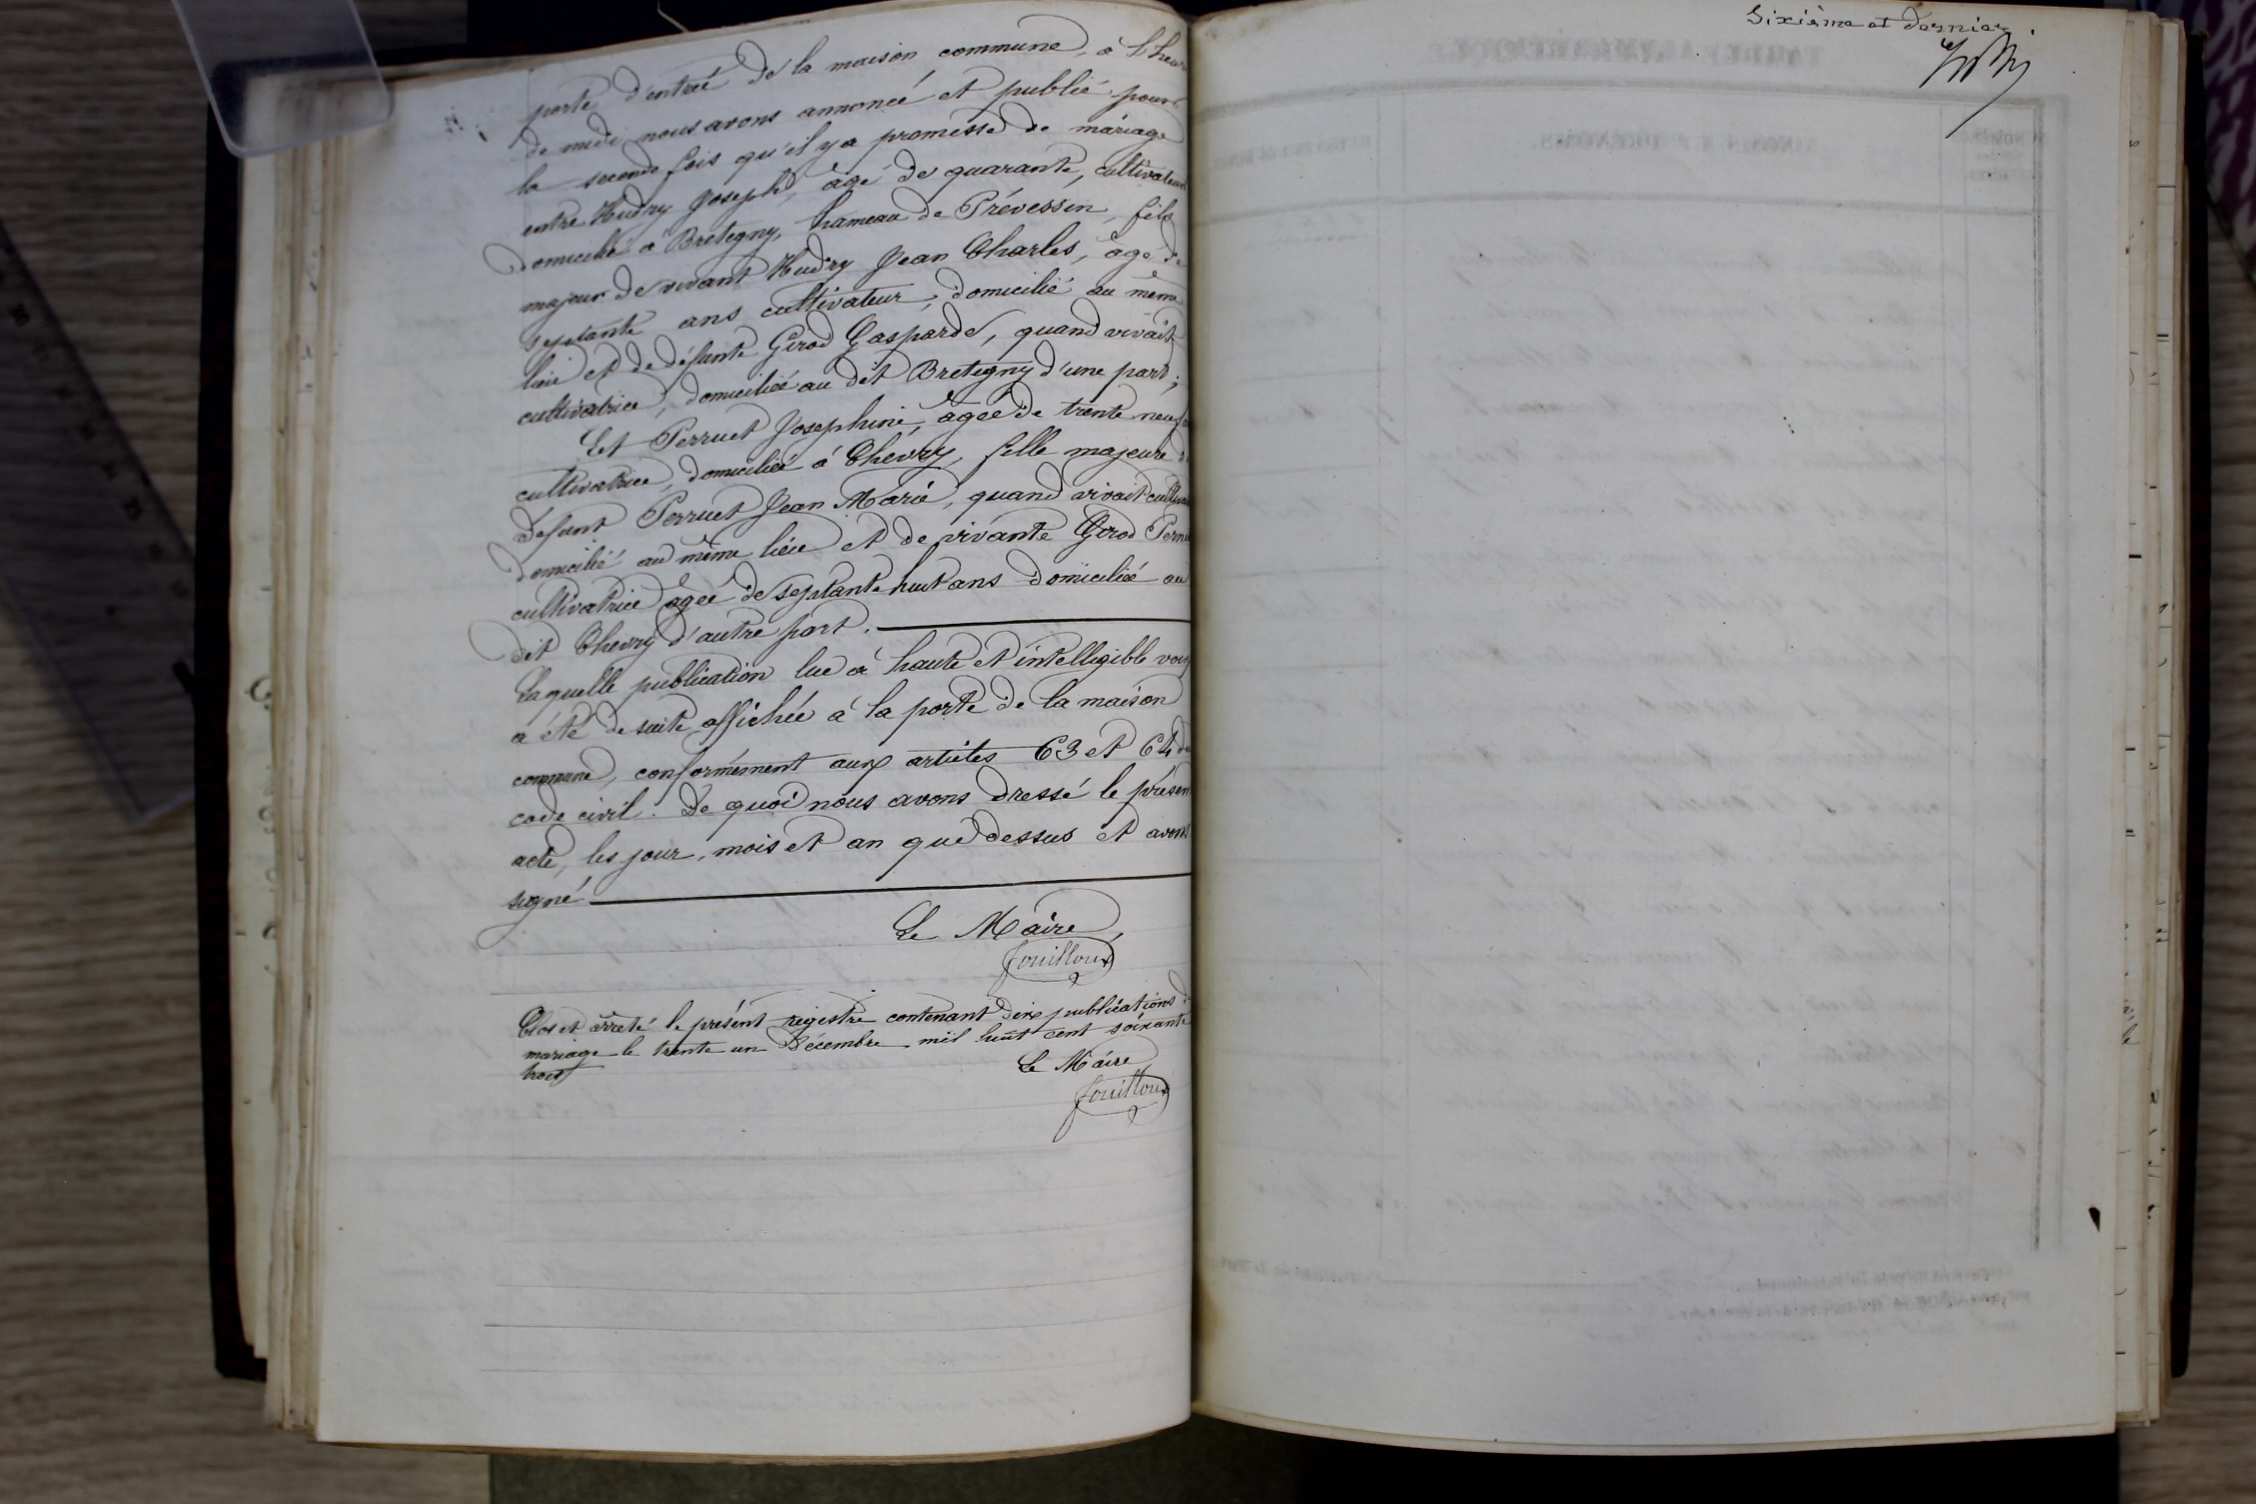 porte d'entrée de la maison commune, à l'heure
de midi nous avons annoncé et publié pour
la seconde fois qu'il y a promesse de mariage
entre Hudry Joseph, âgé de quarante, cultivateur
domicilié à Bretegny, hameau de Prévessin, fils
majeur de vivant Hudry Jean Charles, âgé de
septante ans cultivateur, domicilié au même
lieu et de défunte Girod Gasparde, quand vivait
cultivatrice, domiciliée au dit Bretegny d'une part;
Et Perruet Josephine, âgée de trente neuf
cultivatrice, domiciliée à Chevry, fille majeure de
défunt Perruet Jean Marie, quand vivait
domicilié au même lieu et de vivante Girod
cultivatrice âgée de septante huit ans domiciliée au
dit Chevry d'autre part.
Laquelle publication lue à haute et intelligible voix
a été de suite affichée à la porte de la maison
commune, conformément aux articles 63 et 64 du
code civil. De quoi nous avons dressé le présent
acte, les jour, mois et an que dessus et avons
signé
Le Maire,
Fouilloux
Clos et arrêté le présent registre contenant dix publications de
mariage le trente un Décembre mil huit cent soixante
trois
Le Maire
Fouilloux
Sixième et dernier